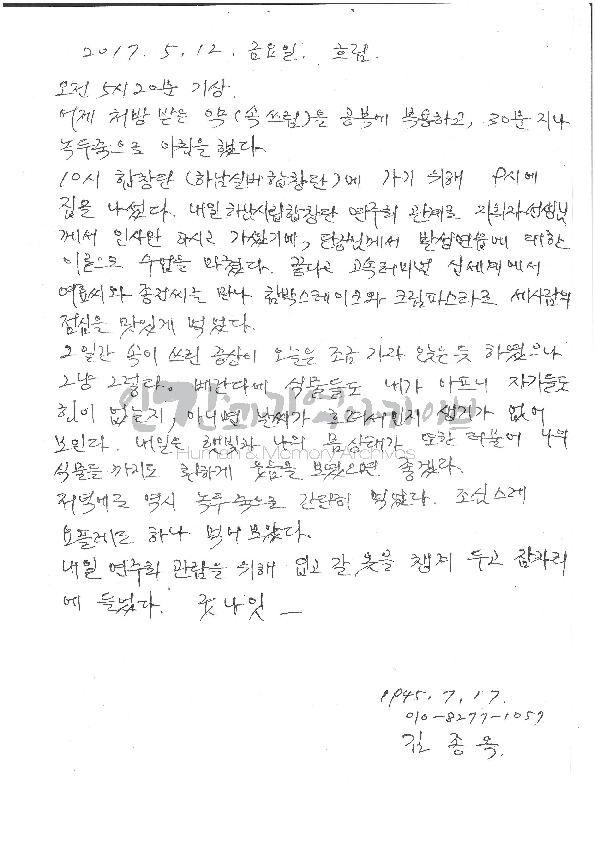 2017. 5. 12. 금요일. 흐림.
오전 5시 20분 기상.
어제 처방 받은 약(속쓰림)을 공복에 복용하고, 30분 지나
녹두죽으로 아침을 했다.
10시 합창단(하남실버합창단)에 가기 위해 9시에
집을 나섰다. 내일 하남시립합창단 연주회 관계로 지휘자선생님
께서 인사만 하시고 가셨기에, 단장님께서 발성연습에 대한
이론으로 수업을 마쳤다. 끝나고 고속터미널 신세계에서
만나 함박스테이크와 크림파스타로 세사람의
점심을 맛있게 먹었다.
2일간 속이 쓰린 증상이 오늘은 조금 가라 앉은 듯 하였으나
그냥 그렇다. 베란다에 식물들도 내가 아프니 자기들도
힘이 없는지, 아니면 날씨가 흐려서인지 생기가 없어
보인다. 내일은 햇빛과 나의 몸 상태가 또한 더불어 나의
식물들 까지도 환하게 웃음을 보였으면 좋겠다.
저녁에도 역시 녹두죽으로 간단히 먹었다. 조심스레
요플레도 하나 먹어 보았다.
내일 연주회 관람을 위해 입고 갈 옷을 챙겨 두고 잠자리
에 들었다. 굿나잇 —
인간과기억아카이브
Human & Memory Archives
1945. 7. 17.
010-8277-1057
김종옥.